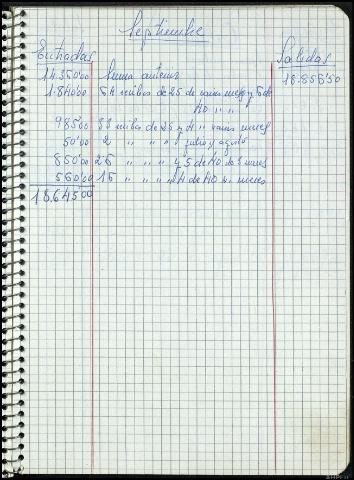 Septiembre
Entradas Salidas
14.350'00 Suma anterior 18.856'50
1.840'00 54 recibos de 25 de varios meses y 5 de
40 " "
985'00 33 recibos de 25 y 4 " varios meses
50'00 2 " " " julio y agosto
850'00 26 " " " y 5 de 40 de 3 meses
560'00 15 " " " y 4 de 40 meses
18.645'00